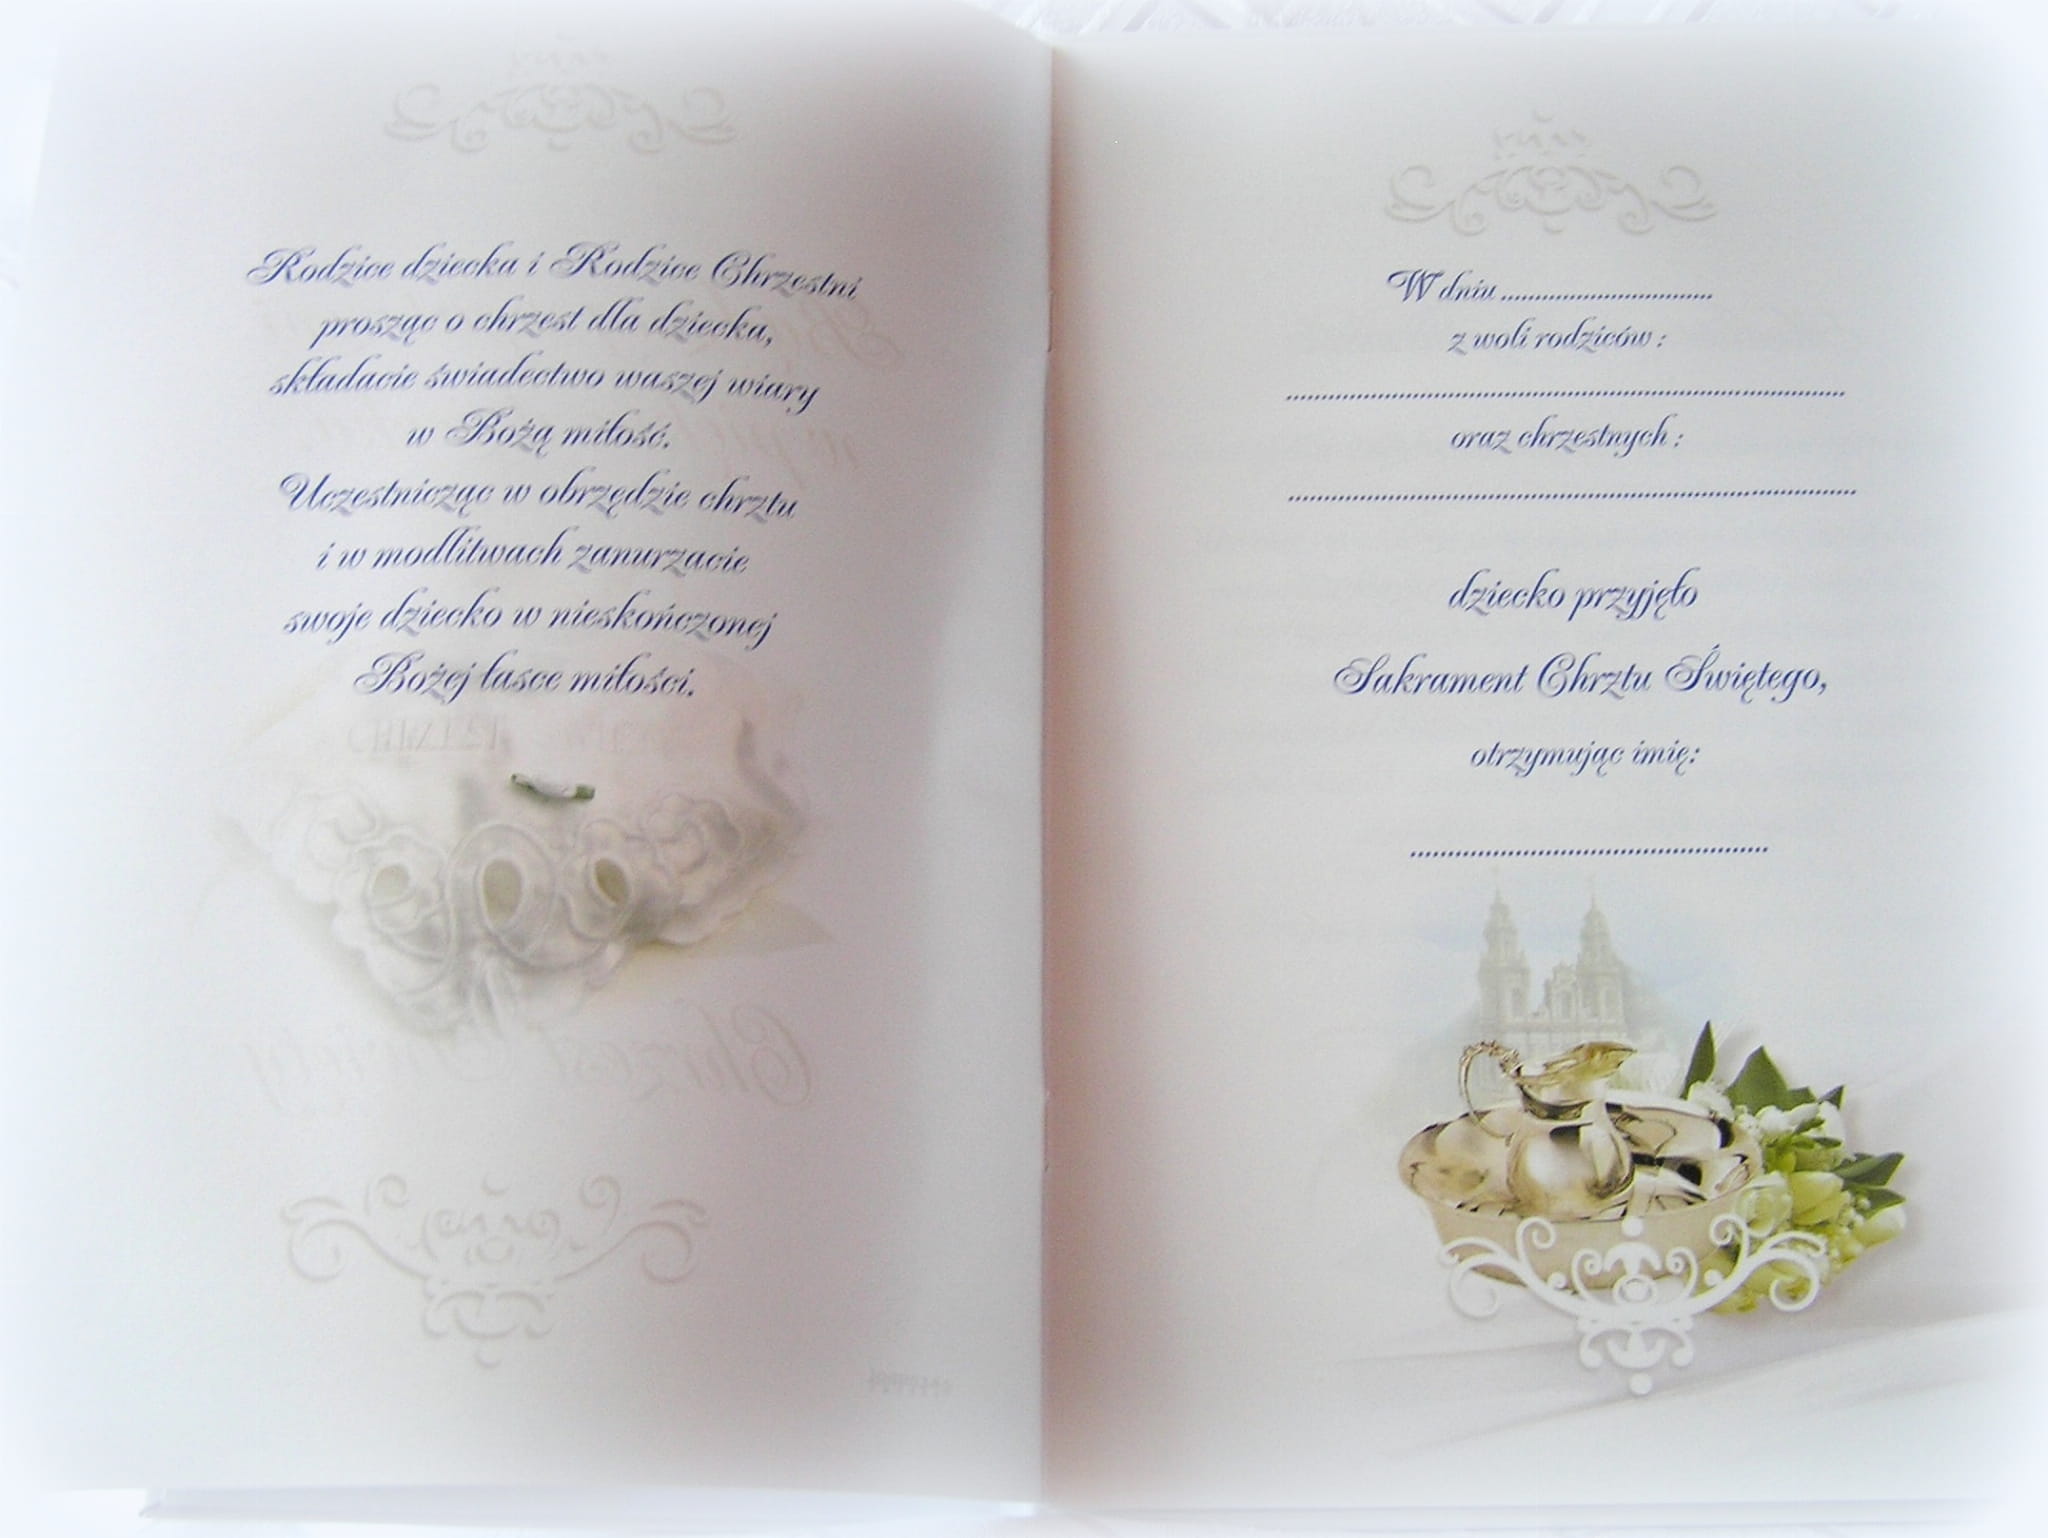 Rodzice dziecka i Rodzice Chrzestni
prosząc o chrzest dla dziecka,
składacie świadectwo waszej wiary
w Bożą miłość.
Uczestnicząc w obrzędzie chrztu
i w modlitwach zanurzacie
swoje dziecko w nieskończonej
Bożej łasce miłości.
W dniu ................................
z woli rodziców :
................................................................................
oraz chrzestnych :
................................................................................
dziecko przyjęło
Sakrament Chrztu Świętego,
otrzymując imię:
................................................